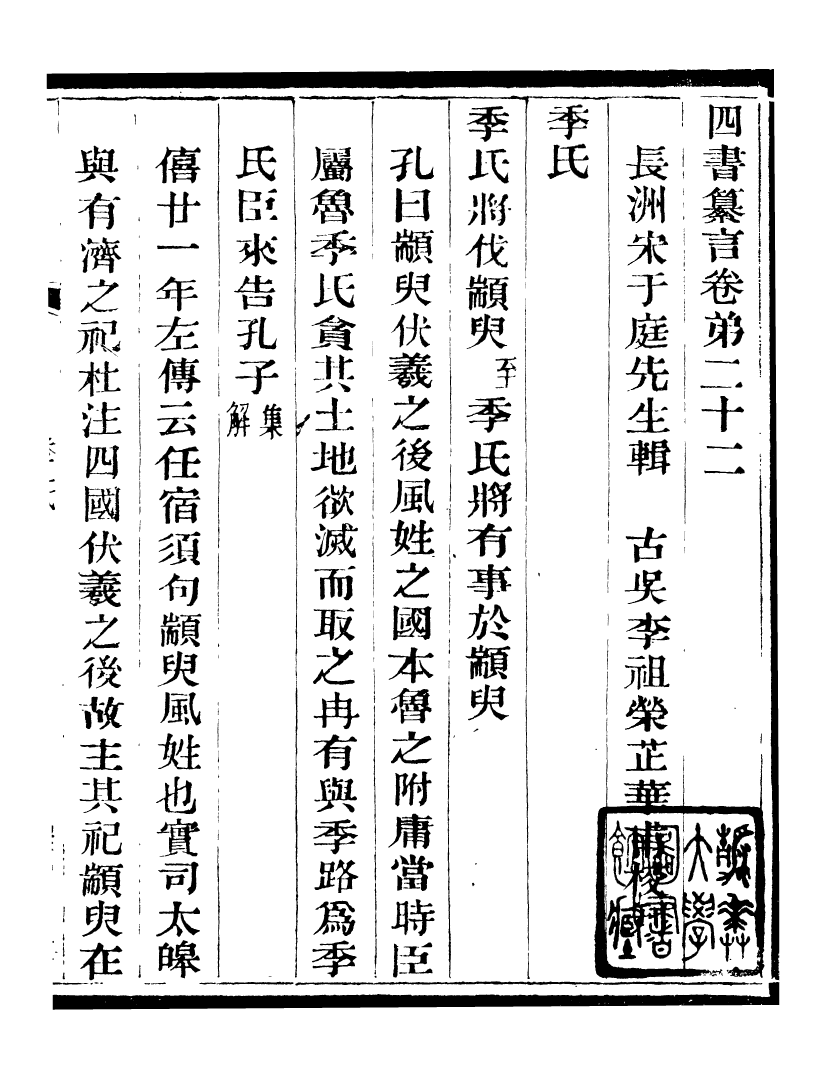 四書纂言卷弟二十二
長洲宋于庭先生輯　古吳李祖榮芷華甫校
季氏
季氏將伐顓臾至季氏將有事於顓臾
孔曰顓臾伏羲之後風姓之國本魯之附庸當時臣
屬魯季氏貪其土地欲滅而取之冉有與季路爲季
氏臣來告孔子集解
僖廿一年左傳云任宿須句顓臾風姓也實司太皞
與有濟之祀杜注四國伏羲之後故主其祀顓臾在